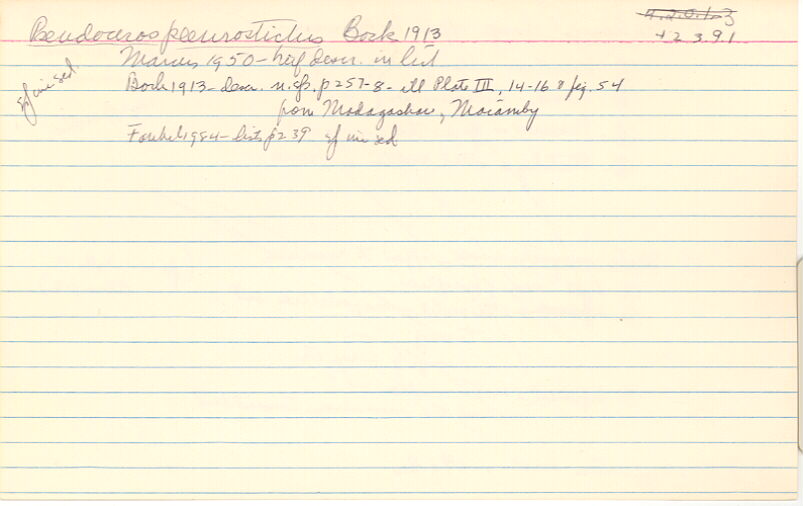 Pseudoceros pleurostictus Bock 1913
4.2.0.1.3
42391
Marcus 1950 - brief descr. in list
Bock 1913 - descr. n.sp. p 257-8 - ill Plate III, 14-16 & fig. 54
from Madagaskar,
Faubel 1984 - lists p 239 sp inc sed
sp inc sed.